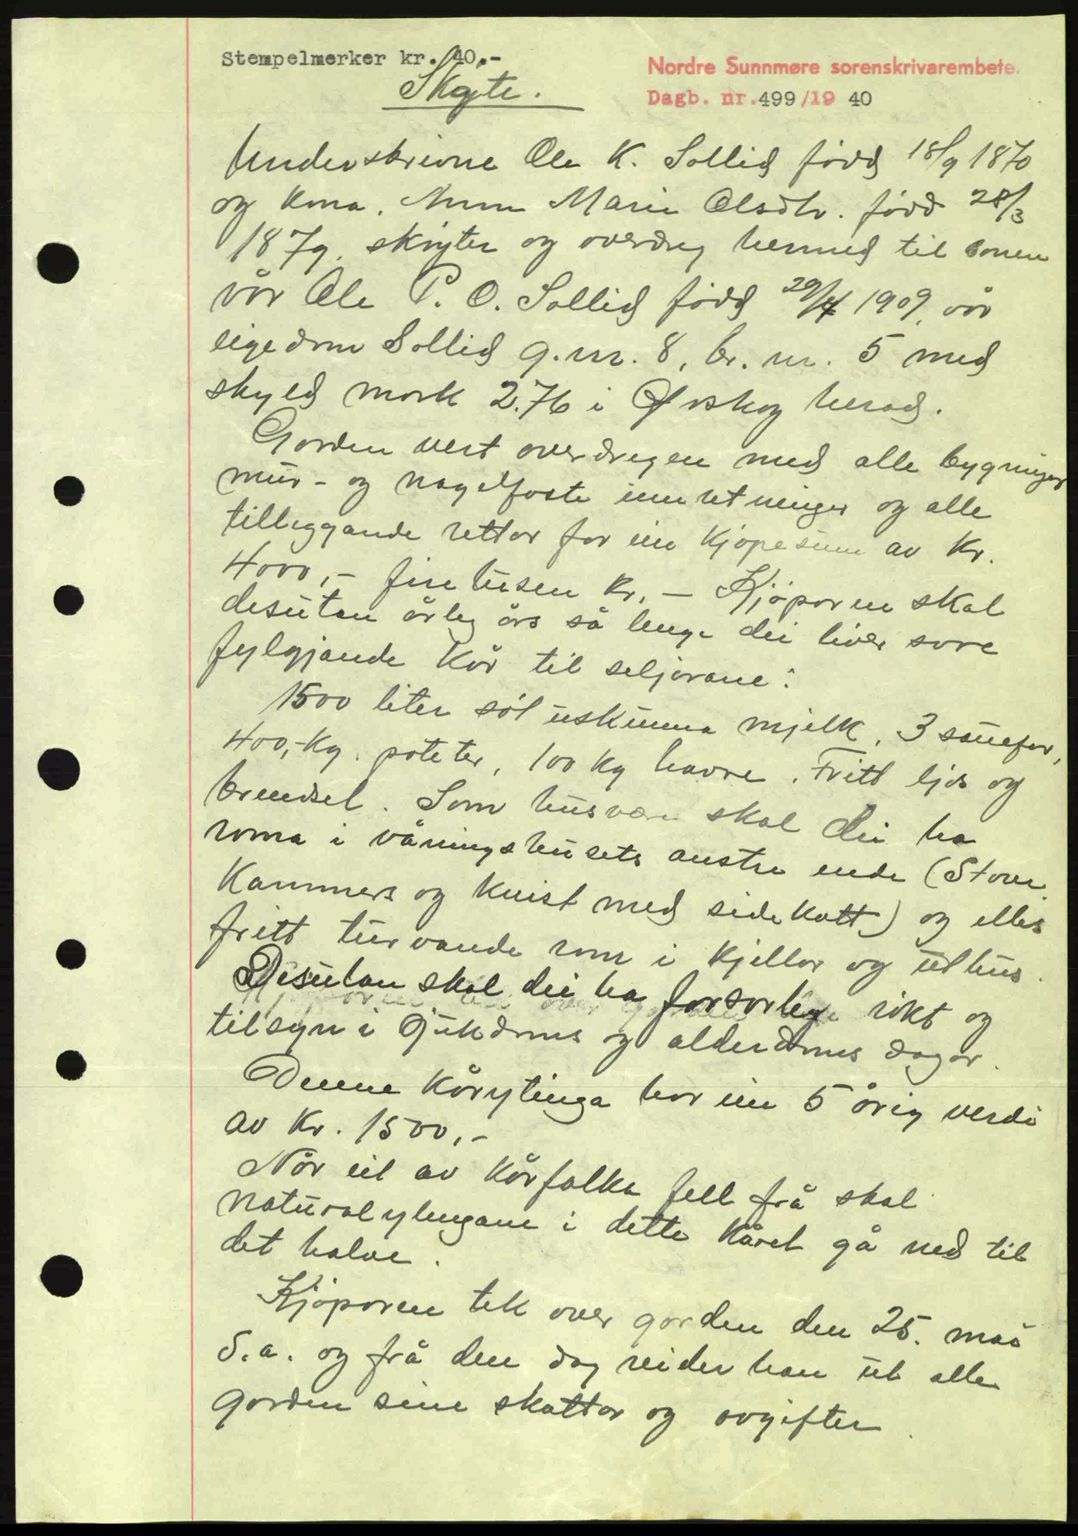 Stempelmerker kr. 40.-
Nordre Sunnmøre sorenskrivarembete.
Dagb. nr. 499/19 40
Skøyte.
Underskrivne Ole K. Sollid fødd 18/9 1870
og kona, Anna Marie Olsdtr. fødd 28/3
1879, skøyter og overdreg hermed til sonen
vår Ole P. O. Sollid fødd 29/4 1909, vår
eigedom Sollid g.nr. 8, br. nr. 5 med
skyld mark 2.76 i Ørskog herad.
Garden vert overdregen med alle bygninger
mur- og nagelfaste innretninger og alle
tilleggande rettar for ein kjøpesum av kr.
4000,- fire tusen kr. - Kjøparen skal
desutan årleg års så lenge dei liver svare
fylgjande kår til seljarane:
1500 liter søt uskumma mjelk, 3 sauefor,
400,- kg. poteter, 100 kg havre. Fritt ljos og
brendsel. Som husvære skal dei ha
roma i våningshusets austre ende (Stove
Kammers og kvist med sidekott) og elles
fritt turvande rom i kjellar og uthus.
Desutan skal dei ha forsorleg røkt og
tilsyn i sjukdoms og alderdoms dagar.
Denne kårytinga har ein 5 årig verdi
av kr. 1500,-
Når eit av kårfolka fell frå skal
naturalytingane i dette kåret gå ned til
det halve.
Kjøparen tek over garden den 25. mai
d.a. og frå den dag reider han ut alle
garden sine skattar og avgifter.